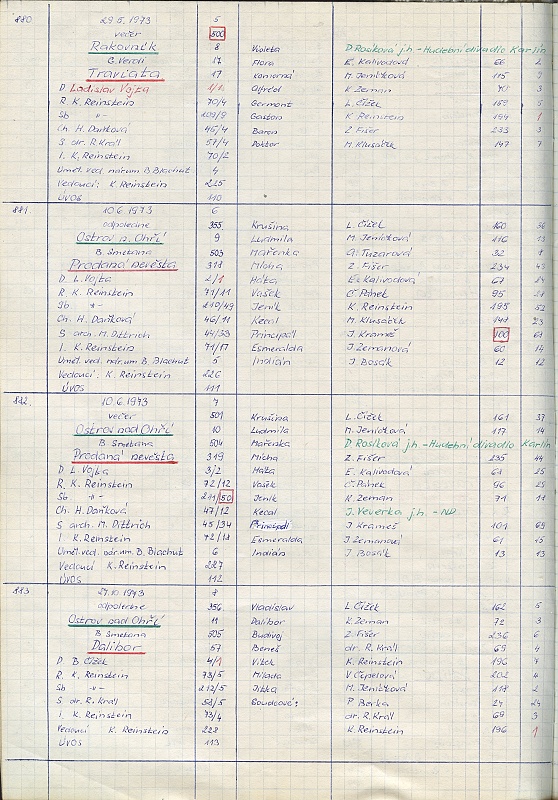 880 29.5.1973 5
večer 500
Rakovník 8 Violeta D. Rosíková j.h. - Hudební divadlo Karlín
G. Verdi 17 Flora E. Kalivodová 66 2
Traviata 17 Komorná M. Jeníčková 115 2
D. Ladislav Vojta 1/1 Alfréd K. Zeman 70 3
R. K. Reinstein 70/4 Germont L. Čížek 159 5
Sb -"- 209/9 Gaston K. Reinstein 194 1
Ch. H. Daňková 45/4 Baron Z. Fišer 233 3
S dr. R. Král 57/4 Doktor M. Klusáček 147 7
I. K. Reinstein 70/2
Uměl. ved. nár. um. B. Blachut 4
Vedoucí: K. Reinstein 225
ÚVOS 110
881 10.6.1973 6
odpoledne 355 Krušina L. Čížek 160 36
Ostrov n. Ohří 9 Ludmila M. Jeníčková 116 13
B. Smetana 503 Mařenka G. Tuzarová 32 1
Prodaná nevěsta 318 Mícha Z. Fišer 234 43
D. L. Vojta 2/1 Háta E. Kalivodová 67 24
R. K. Reinstein 71/11 Vašek Č. Pánek 95 24
Sb -"- 210/49 Jeník K. Reinstein 195 52
Ch. H. Daňková 46/11 Kecal M. Klusáček 147 23
S arch. M. Dittrich 44/33 Principál J. Krameš 100 68
I. K. Reinstein 71/17 Esmeralda J. Zemanová 60 14
Uměl. ved. nár. um. B. Blachut 5 Indián J. Bosák 12 12
Vedoucí: K. Reinstein 226
ÚVOS 111
882 10.6.1973 7
večer 501 Krušina L. Čížek 161 37
Ostrov nad Ohří 10 Ludmila M. Jeníčková 117 14
B. Smetana 504 Mařenka D. Rosíková j.h. - Hudební divadlo Karlín
Prodaná nevěsta 319 Mícha Z. Fišer 235 44
D L. Vojta 3/2 Háta E. Kalivodová 68 25
R. K. Reinstein 72/12 Vašek Č. Pánek 96 25
Sb -"- 211/50 Jeník K. Zeman 71 11
Ch. H. Daňková 47/12 Kecal J. Veverka j.h. - ND
S arch. M. Dittrich 45/34 Principál J. Krameš 101 69
I. K. Reinstein 72/18 Esmeralda J. Zemanová 61 15
Uměl. ved. nár. um. B. Blachut 6 Indián J. Bosák 13 13
Vedoucí K. Reinstein 227
ÚVOS 112
883 27.10.1973 8
odpoledne 356 Vladislav L. Čížek 162 5
Ostrov nad Ohří 11 Dalibor K. Zeman 72 3
B Smetana 505 Budivoj Z. Fišer 236 6
Dalibor 57 Beneš dr. R. Král 68 4
D B. Čížek 4/1 Vítek K. Reinstein 196 7
R. K. Reinstein 73/5 Milada V Čepelová 202 4
Sb -"- 212/5 Jitka M. Jeníčková 118 2
S dr. R. Král 58/5 Soudcové: P Berka 24 24
I. K. Reinstein 73/4 dr. R. Král 69 3
Vedoucí K. Reinstein 228 K. Reinstein 196 1
ÚVOS 113